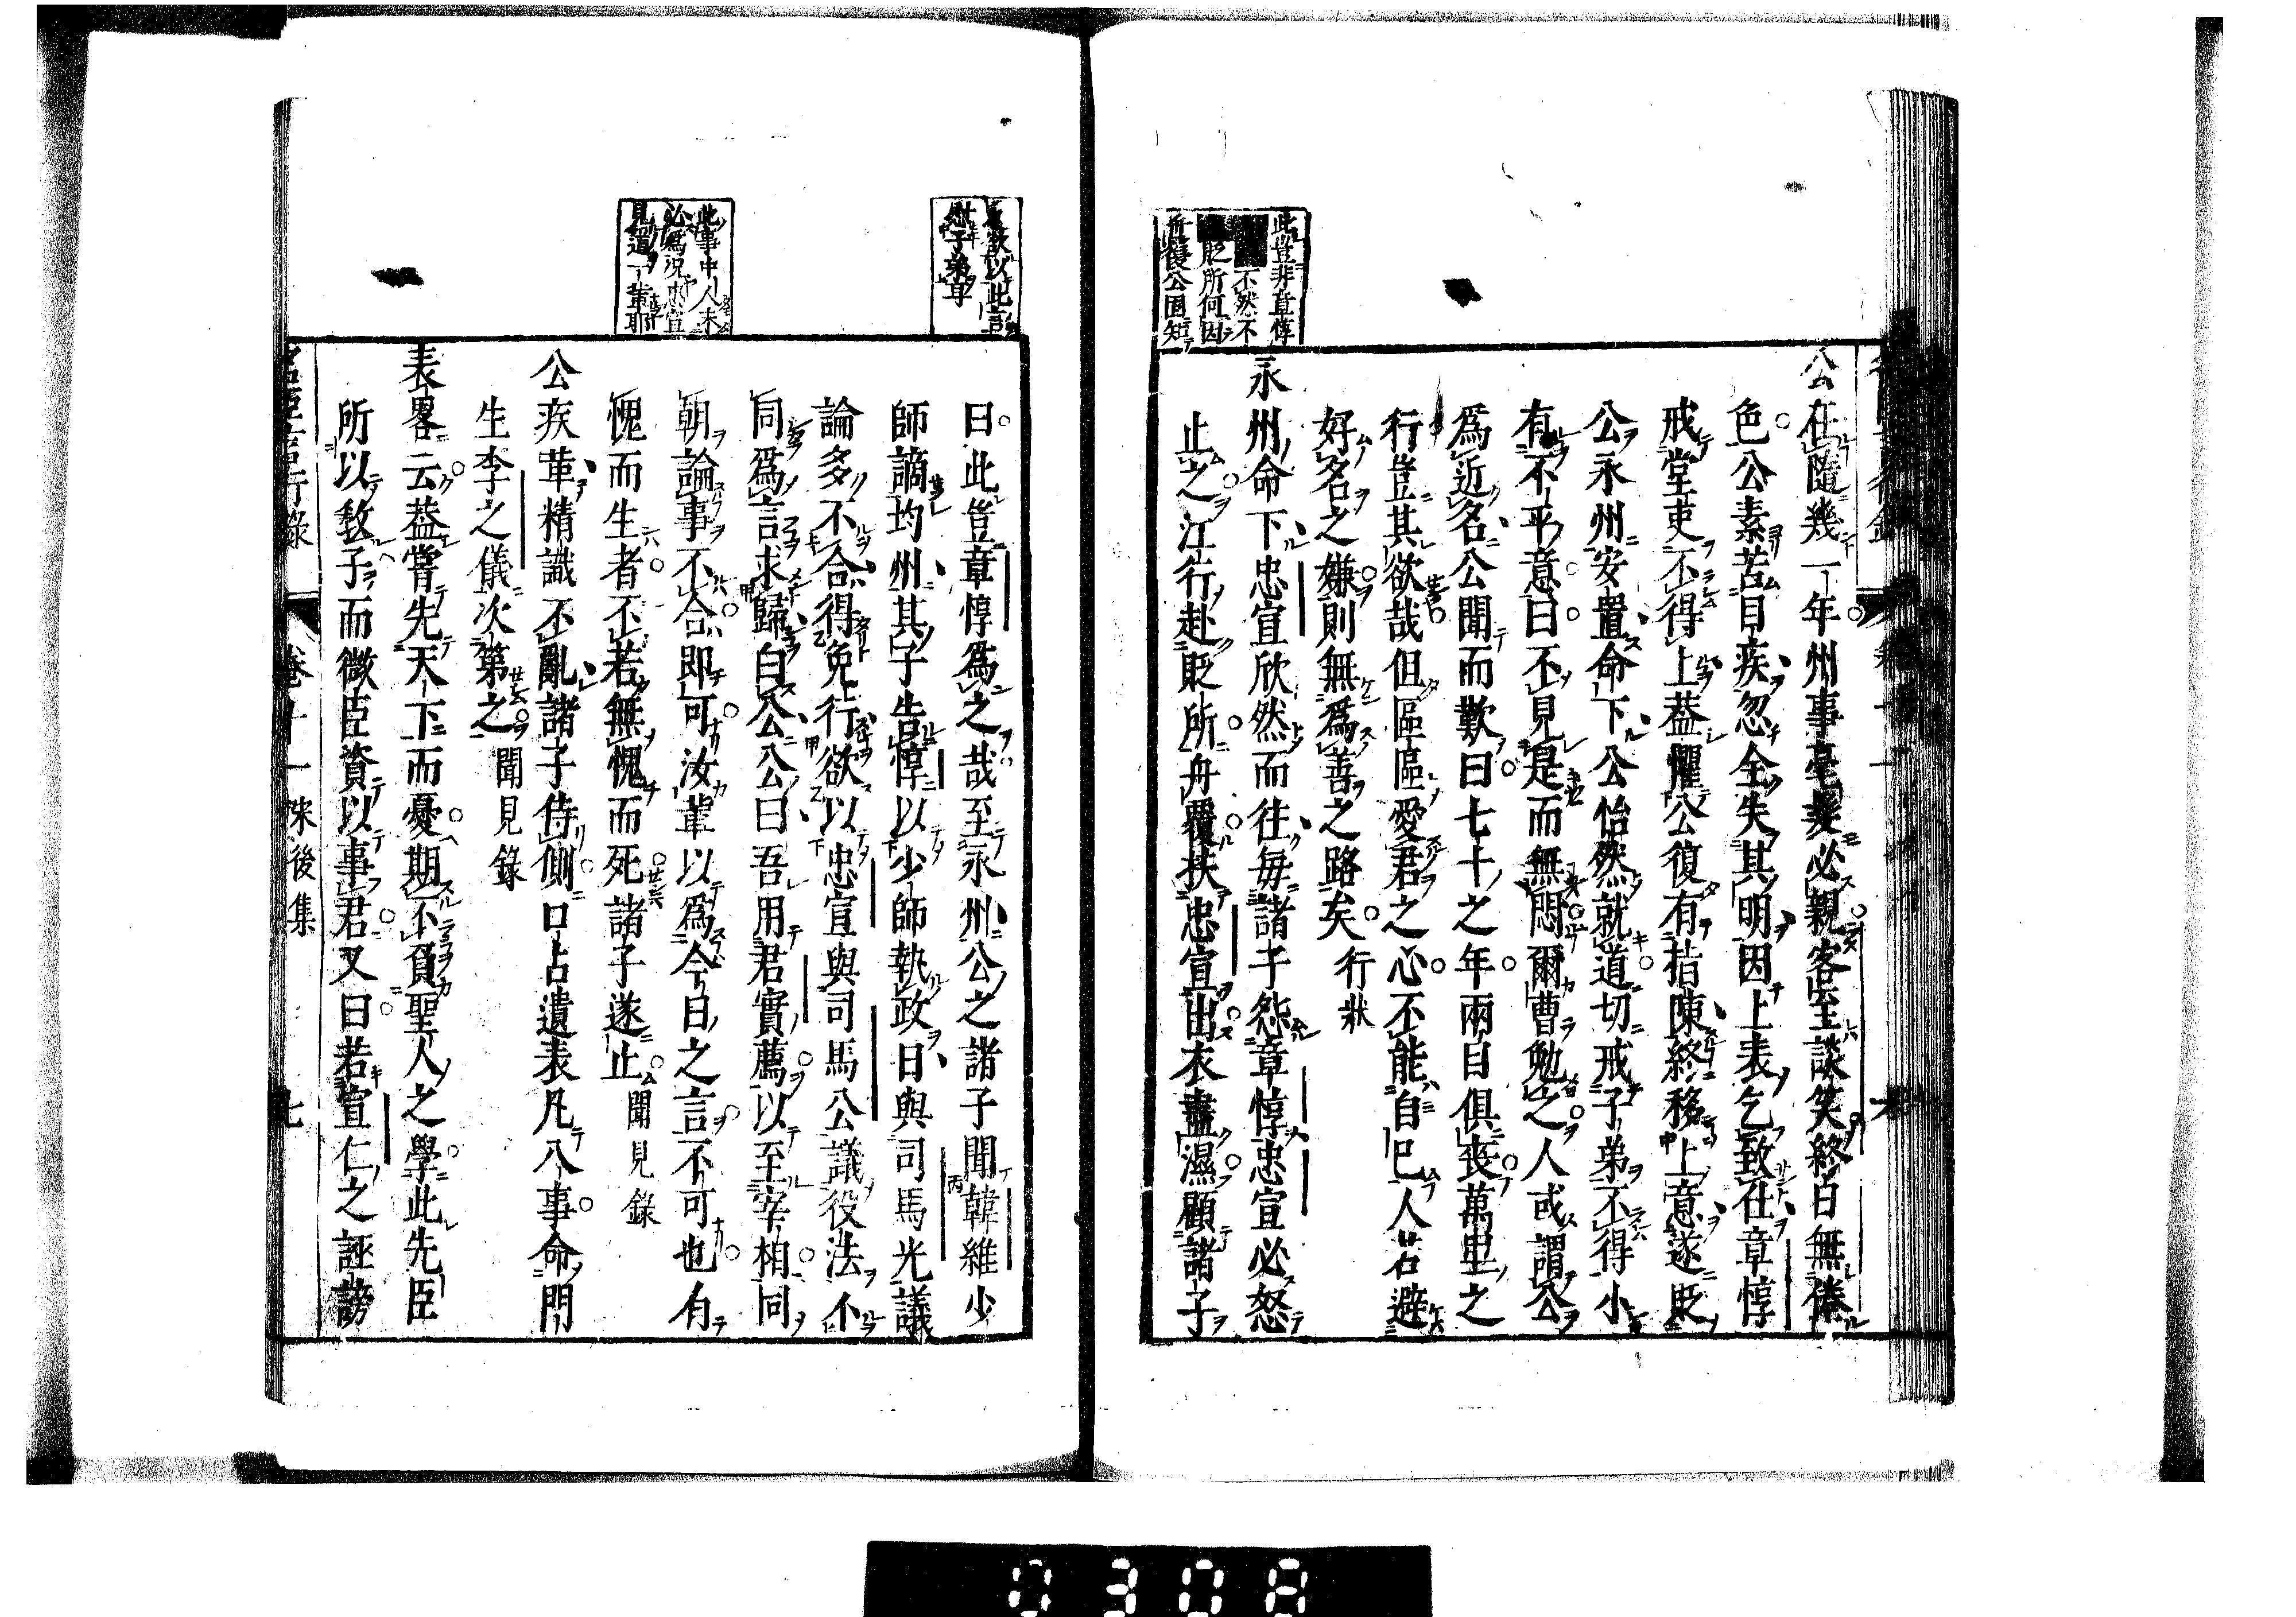 公在隨幾一年州事毫髮必親客至談笑終日無倦
色公素苦目疾忽全失其明因上表乞致仕章惇
戒堂吏不得上葢懼公復有指陳終移上意遂貶
公永州安置命下公怡然就道切戒子弟不得小
有不平意曰不見是而無悶爾曹勉之人或謂公
爲近名公聞而歎曰七十之年兩目俱喪萬里之
行豈其欲哉但區區愛君之心不能自已人若避
好名之嫌則無爲善之路矣行狀
永州命下忠宣欣然而往每諸子怨章惇忠宣必怒
止之江行赴貶所舟覆扶忠宣出衣盡濕顧諸子
此豈非章惇
不然不
貶所何因
所復公固知
曰此豈章惇爲之哉至永州公之諸子聞韓維少
師謫均州其子告惇以少師執政日與司馬光議
論多不合得免行欲以忠宣與司馬公議役法不
同爲言求歸白公公曰吾用君實薦以至宰相同
朝論事不合即可汝輩以爲今日之言不可也有
愧而生者不若無愧而死諸子遂止聞見錄
公疾革精識不亂諸子侍側口占遺表凡八事命門
生李之儀次第之聞見錄
表畧云葢嘗先天下而憂期不負聖人之學此先臣
所以敎子而微臣資以事君又曰若宣仁之誣謗
欲以此言
慰子弟耳
此事中人未
必爲況忠宣
見道一輩耶
名臣言行錄
卷十一
宋後集
七
0308